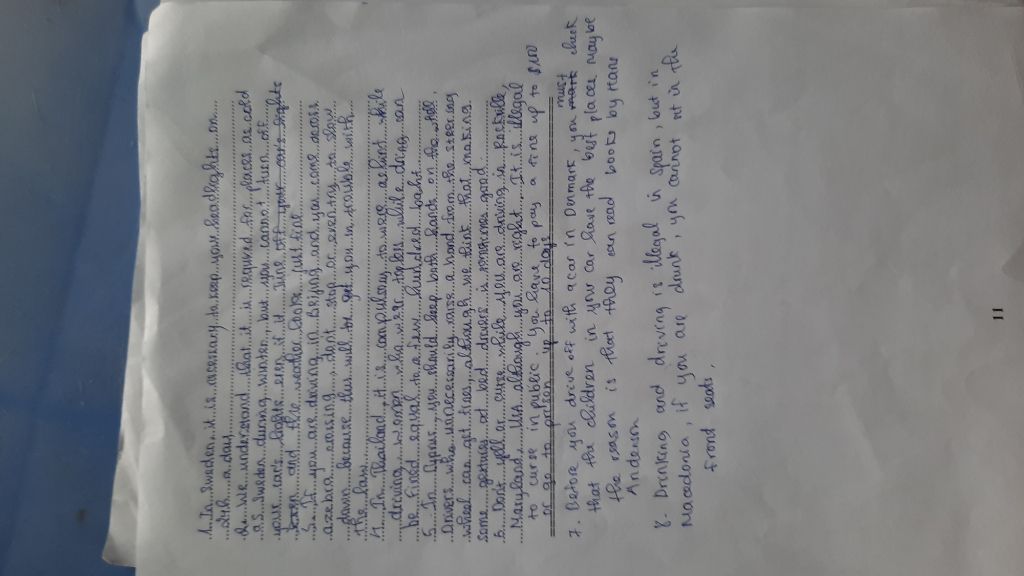 1. In Sweden, it is necessary to keep you headlights on
24h a day
2. We understand that it is required for places as cold
as Sweden during winter, but you cannot turn off
your cars lights even if it
and the weather looks just fine
3. If you are driving in Beijing and you come across
zcebra crossing, don't stop or even try to slow
down because this will get you in trouble with
the law.
4. In Thailand, it is compulsory to wear ashirt while
driving, women who wear topless while dring can
be fined equal to a few hundred baht
5. In Cyprus, you should keep both hands on the
Drivers who unnecessarily raise a hand from the steering
wheel can get fines, although we think that making
some gestures at bad drivers is sometimes good
6. Dont yell or curse while you are driving in Rockville,
Maryland, USA although you are right. It is illegal
to curse in public. You have to pay a fine up to $100
or go to prison up to 10 days
7. Before you drive off with a car in Denmark, you must check
that the children in your car have the best places maybe
the reason is that they can read books by Hans
Anderson
8. Drinking and driving is illegal in Spain, but in
Macedonia, if you are drunk, you cannot sit in the
frond seats.
11